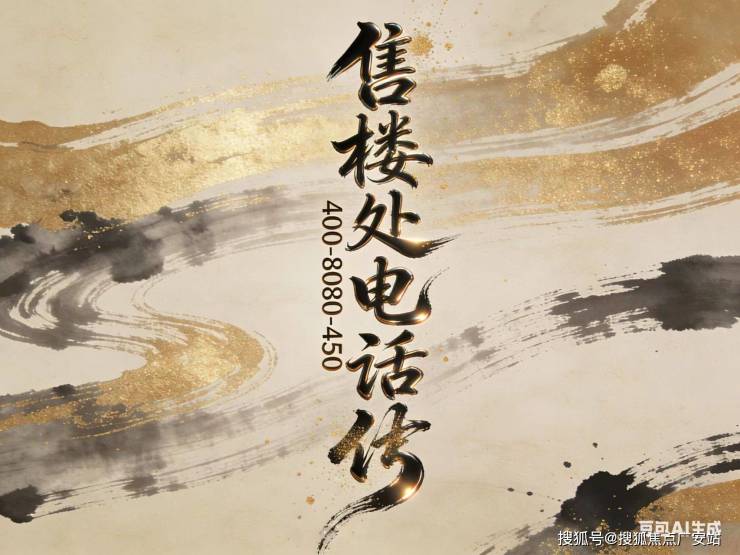 售楼处电话
400-8080-450
豆包AI生成
搜狐号@搜狐焦点广安站